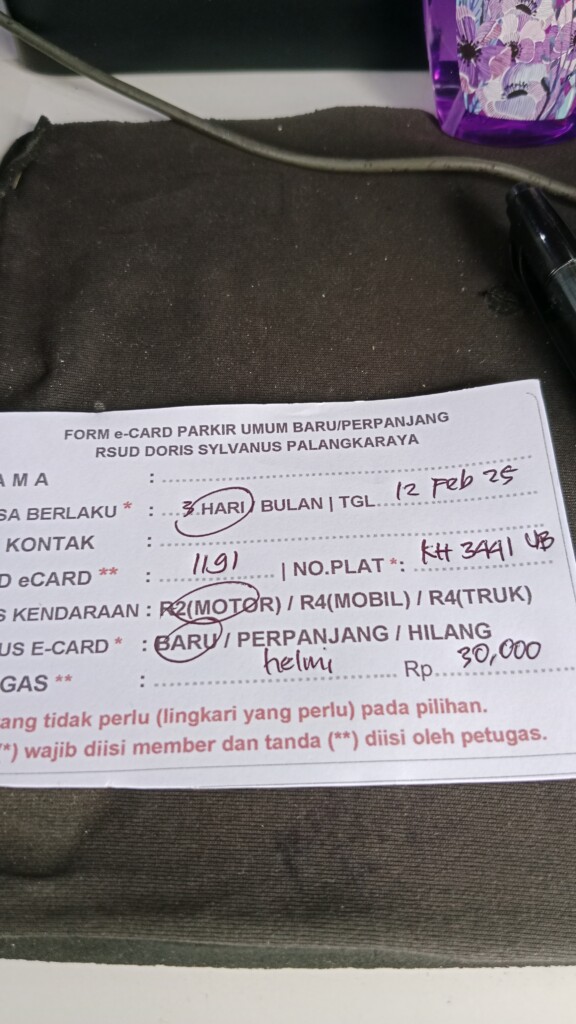 FORM e-CARD PARKIR UMUM BARU/PERPANJANG
RSUD DORIS SYLVANUS PALANGKARAYA
AMA :
SA BERLAKU * : 3 HARI / BULAN | TGL 12 Feb 25
KONTAK :
D eCARD ** : 1191 | NO.PLAT *: KH 3441 UB
S KENDARAAN : R2(MOTOR) / R4(MOBIL) / R4(TRUK)
US E-CARD * : BARU / PERPANJANG / HILANG
GAS ** : helmi Rp 30,000
ang tidak perlu (lingkari yang perlu) pada pilihan.
*) wajib diisi member dan tanda (**) diisi oleh petugas.